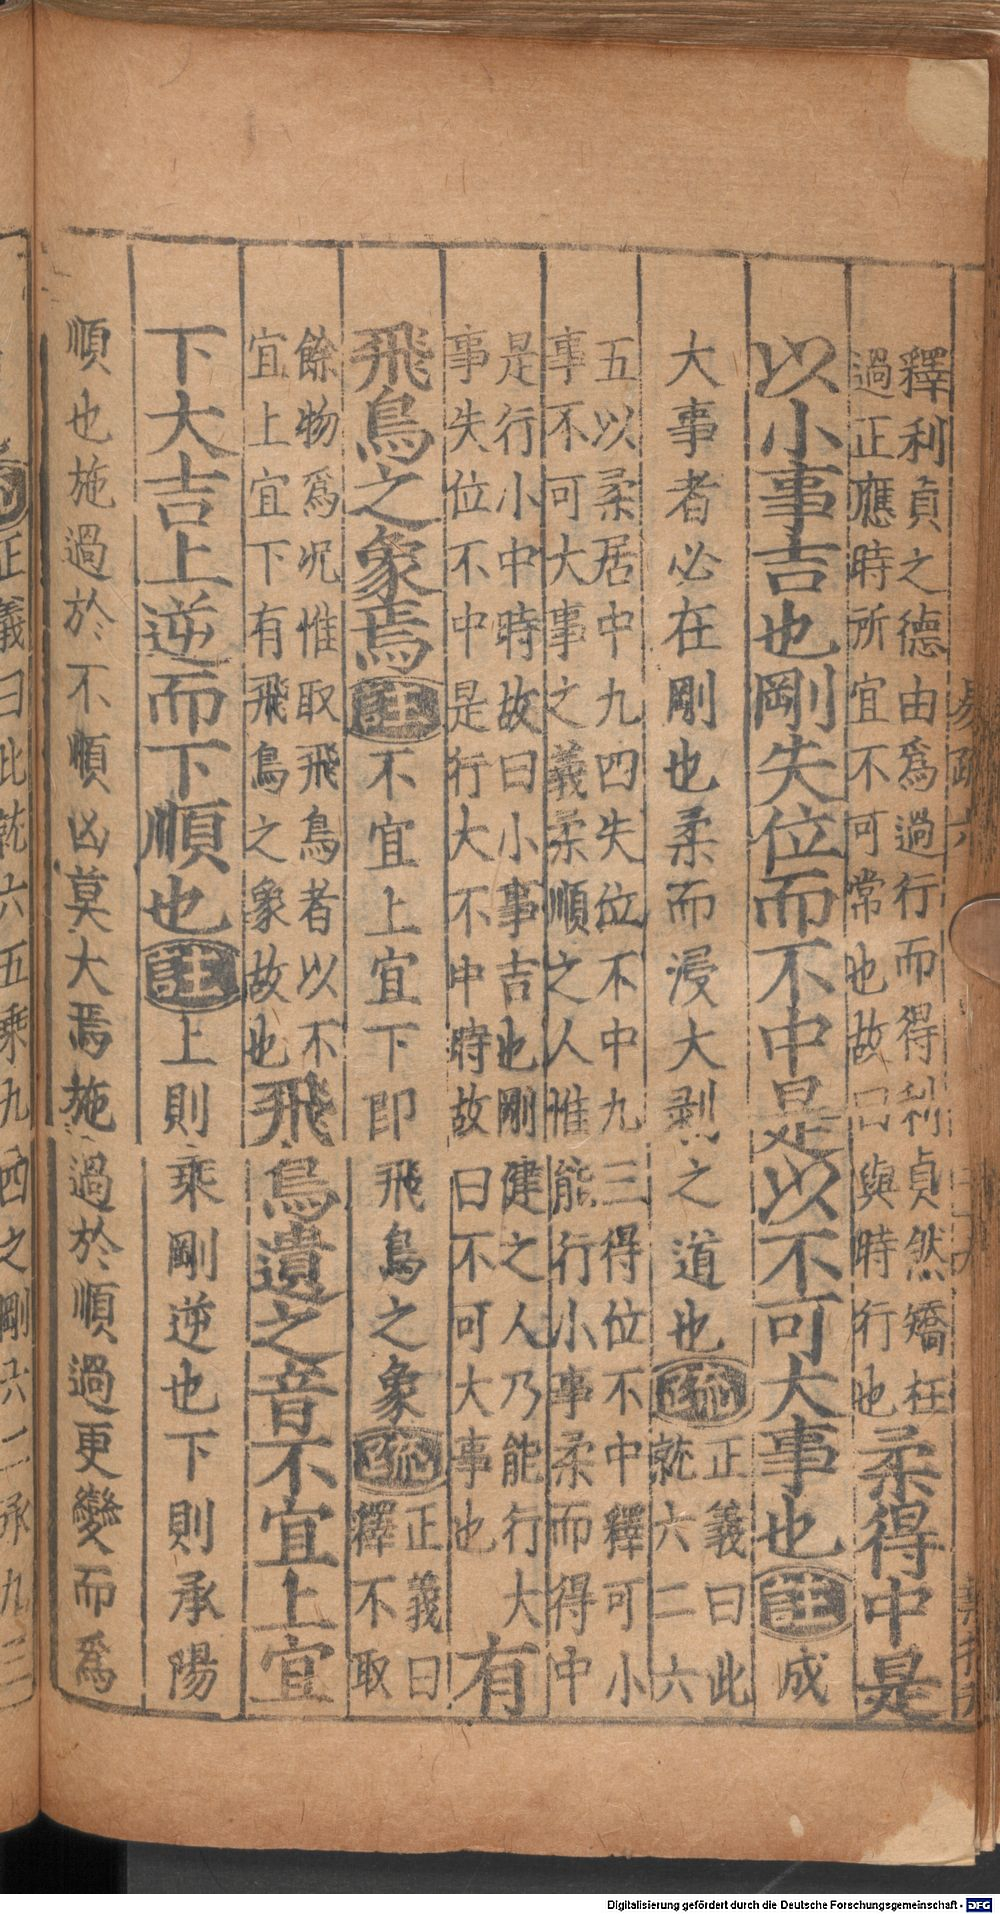 釋利貞之德由爲過行而得利貞然矯枉
過正應時所宜不可常也故曰與時行也
柔得中是
以小事吉也剛失位而不中是以不可大事也註成
大事者必在剛也柔而浸大剥之道也疏
正義曰此
就六二六
五以柔居中九四失位不中九三得位不中釋可小
事不可大事之義柔順之人惟能行小事柔而得中
是行小中時故曰小事吉也剛健之人乃能行大
事失位不中是行大不中時故曰不可大事也
有
飛鳥之象焉註不宜上宜下即飛鳥之象疏
正義曰
釋不取
餘物爲况惟取飛鳥者以不
宜上宜下有飛鳥之象故也
飛鳥遺之音不宜上宜
下大吉上逆而下順也註上則乘剛逆也下則承陽
順也施過於不順凶莫大焉施過於順過更變而爲
正義曰此就六五乘九四之剛六二承九三
易疏六
Digitalisierung gefördert durch die Deutsche Forschungsgemeinschaft - DFG